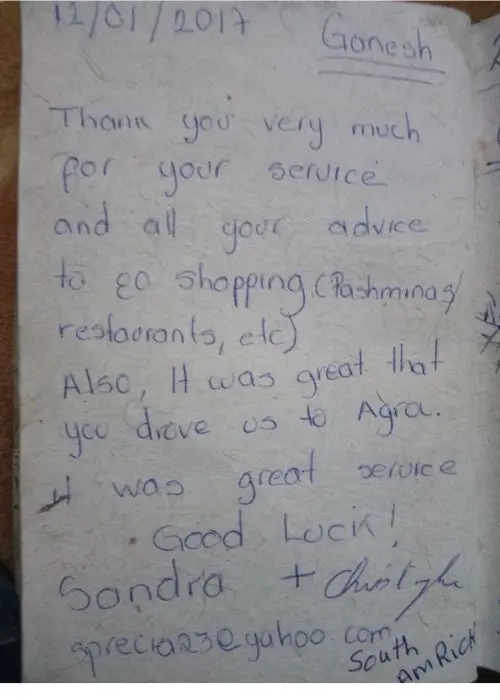 12/01/2017
Ganesh
Thank you very much
for your service
and all your advice
to go shopping (Pashminas/
restaurants, etc)
Also, It was great that
you drove us to Agra.
It was great service
Good Luck!
Sandra +
@yahoo.com
South
AmRica